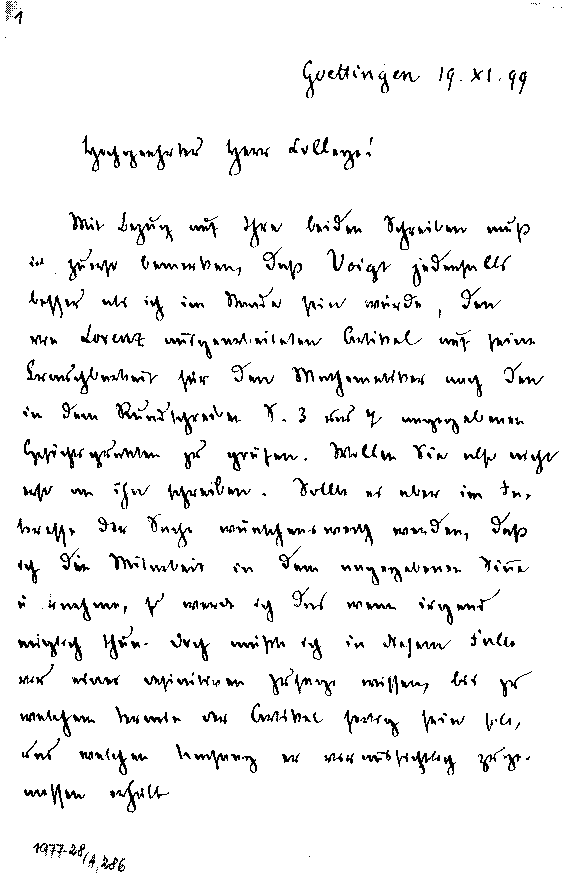 1
Goettingen 19. XI. 99
Hochgeehrter Herr College!
Mit Bezug auf Ihre beiden Schreiben muß
ich zuerst bemerken, daß Voigt jedenfalls
besser als ich im Stande sein würde, den
von Lorentz ausgearbeiteten Artikel auf seine
Brauchbarkeit für den Mathematiker nach den
in dem Rundschreiben S. 3 und 4 angegebenen
Gesichtspunkten zu prüfen. Wollen Sie also nicht
erst an ihn schreiben. Sollte es aber im In-
teresse der Sache wünschenswerth werden, daß
ich die Mitarbeit in dem angegebenen Sinne
übernehme, so werde ich das wenn irgend
möglich thun. Doch müßte ich in diesem Falle
vor einer definitiven Zusage wissen, bis zu
welchem Termin der Artikel fertig sein soll,
und welchen Umfang er voraussichtlich zuge-
messen erhält
1977-28/A,286